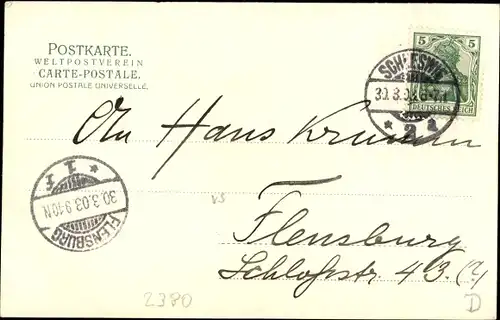 POSTKARTE.
WELTPOSTVEREIN
CARTE-POSTALE.
UNION POSTALE UNIVERSELLE.
5 5
DEUTSCHES REICH
SCHLESWIG
30.3.03.6-7N
* 2 a
An Hans
* 1 f
30.3.03.9-10N
FLENSBURG
Flensburg
Schloßstr. 43 (?)
2380
D